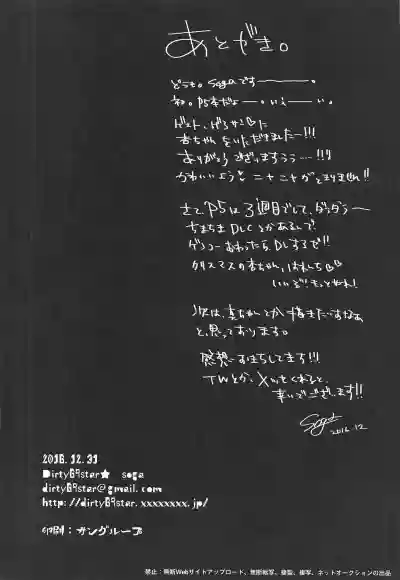 あとがき。
どうも。sogaです――。
初。P5本だよー。いえーい。
ゲスト、げろサンに
杏ちゃんをいただきましたー!!!
ありがとうございますぅぅ…!!!
かわいいよう ニヤニヤがとまりません!!
さて、P5は3週目でして、ダラダラ〜
ちまちまDLCとかあるんで
おわったら、DLするぞ!!
クリスマスの杏ちゃん、はれんち
いいぞ!もっとやれ!
次は、真ちゃんとか描きたいすなぁ
と、思っております。
感想おまちしてます!!!
TWとか、メッセくれると、
幸いでございます!!
Soga
2016.12
2016.12.31
Dirty69ster★ soga
dirty69ster@gmail.com
http://dirty69ster.xxxxxxxx.jp/
印刷:サングループ
禁止:無断Webサイトアップロード、無断転写、複製、複写、ネットオークションの出品